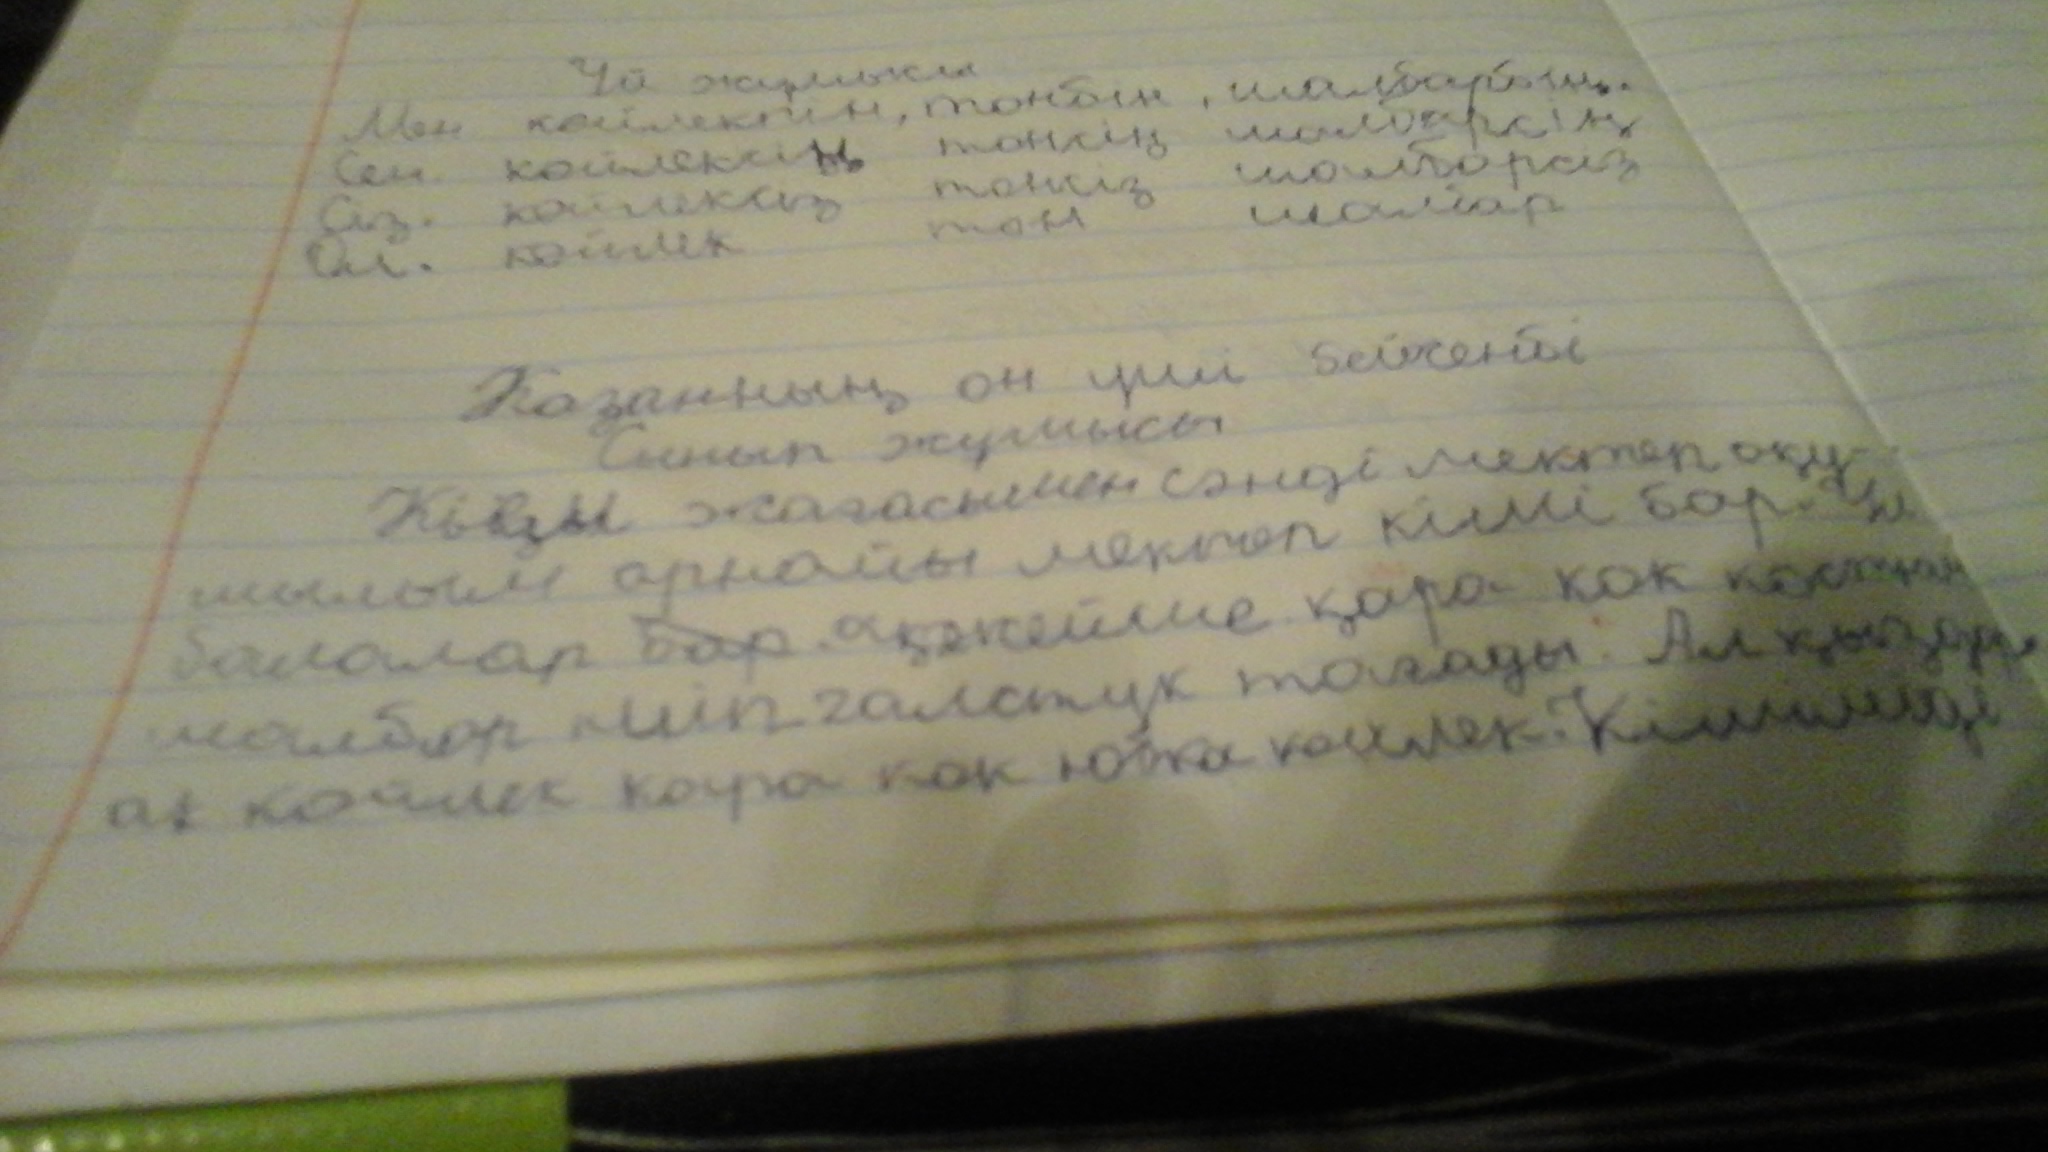 Үй жұмысы
Мен көйлекпін, тонбын, шалбармын.
Сен көйлексің тонсің шалбарсің
Сіз. көйлексіз тонсіз шалбарсіз
Ол. көйлек тон шалбар
Қазанның он үші бейсенбі
Сынып жұмысы
жағасымен сәнді мектеп оқу-
шылым арнайы мектеп кіімі бар. Ұл
балалар бар. ақжейше қара көк костюм
шалбар киіп галстук тағады. Ал қыздары
ақ көйлек қара көк юбка көйлек.